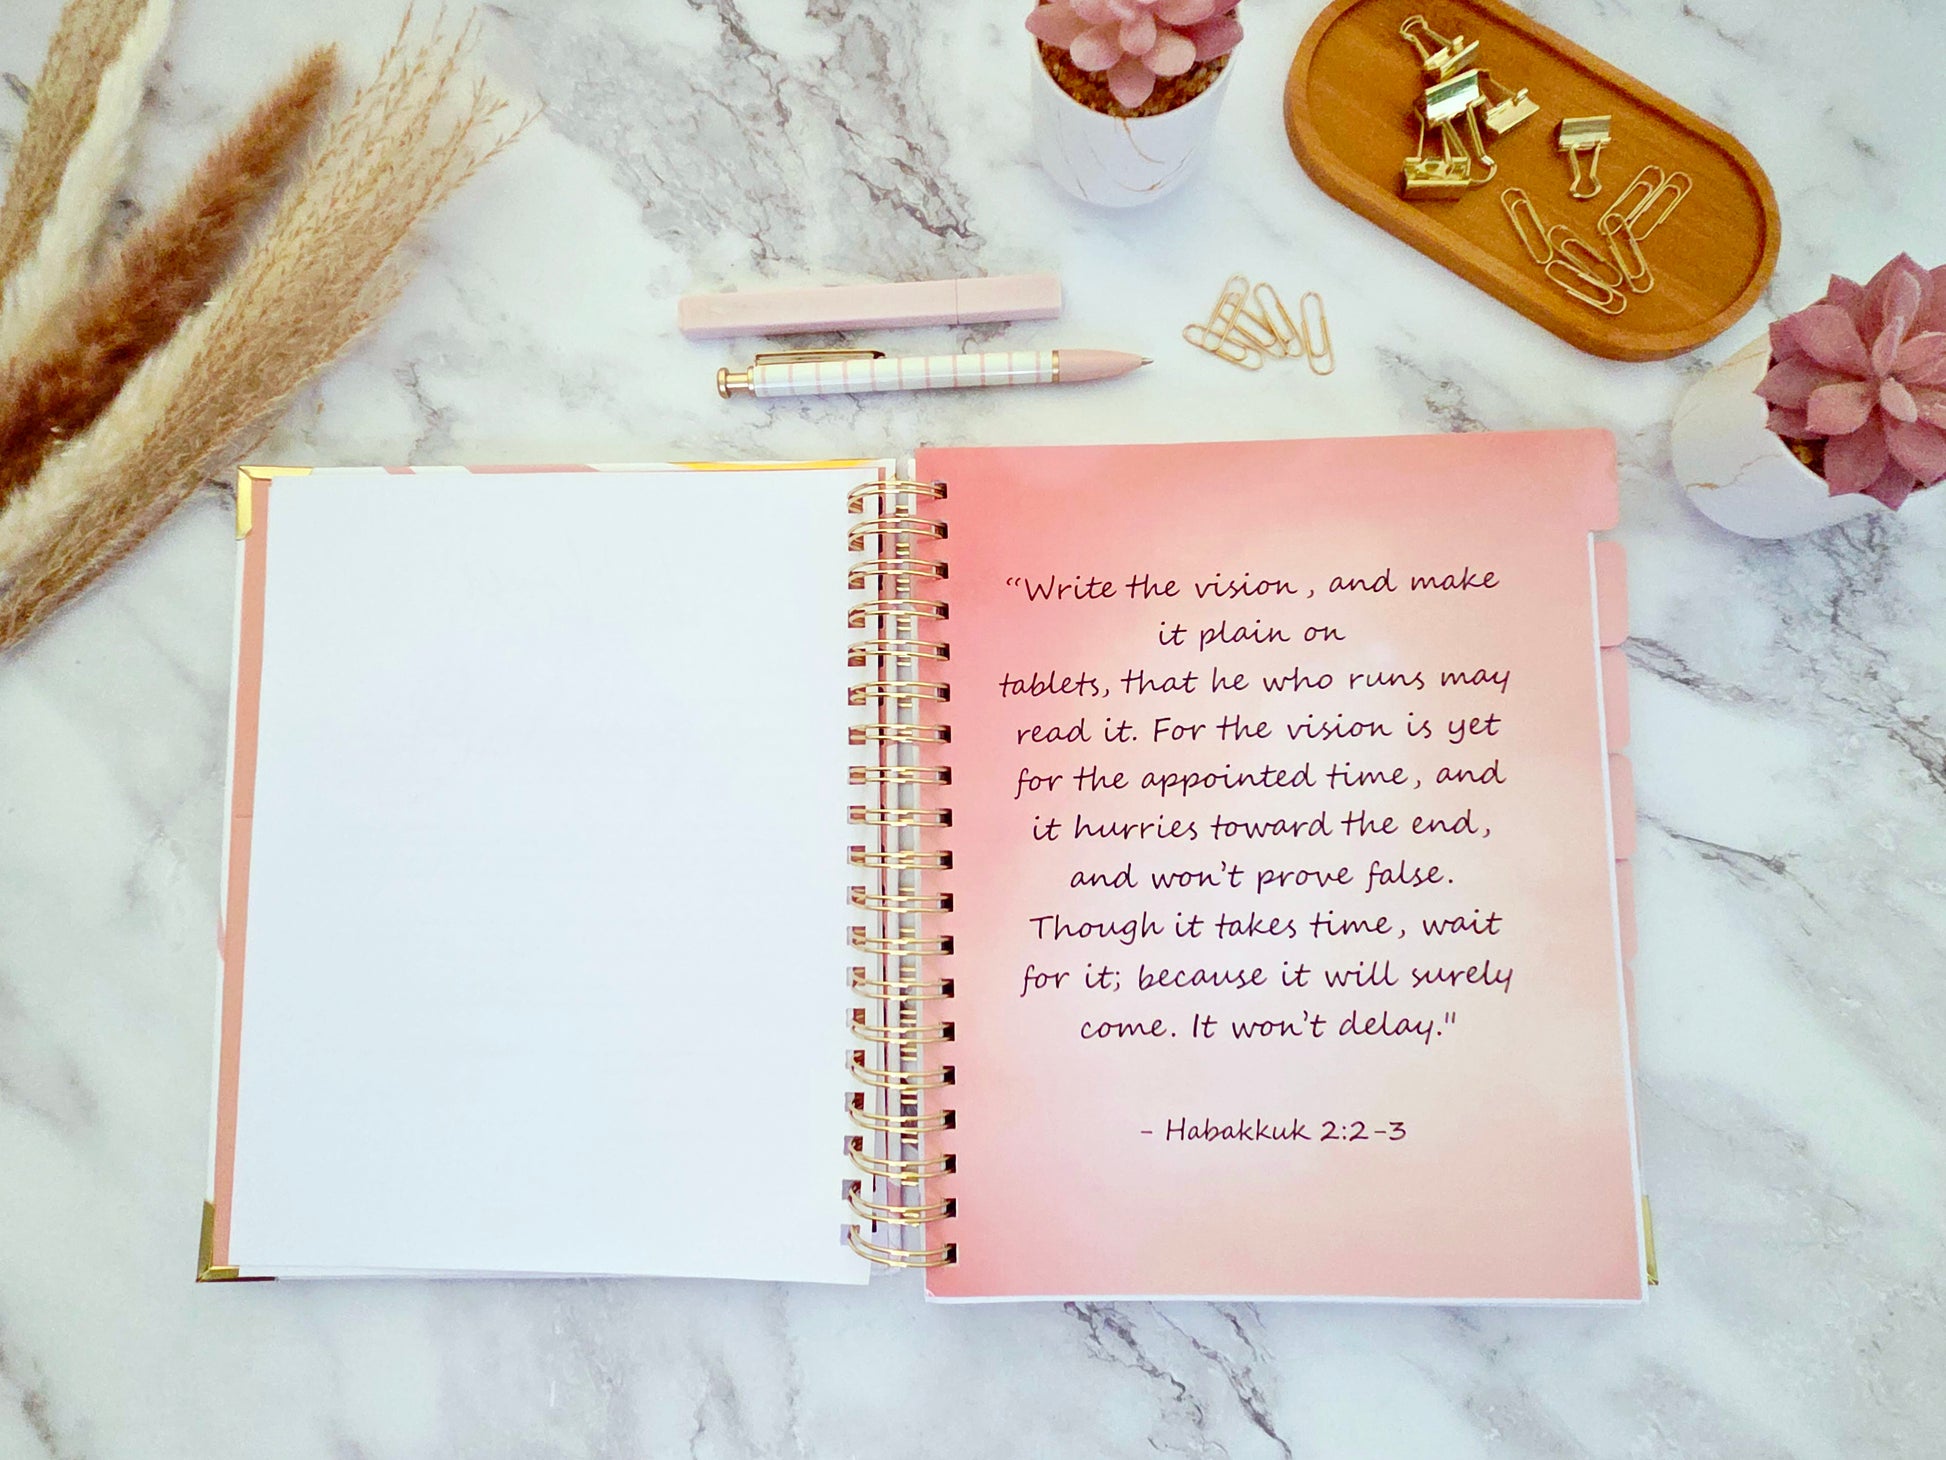 “Write the vision, and make
it plain on
tablets, that he who runs may
read it. For the vision is yet
for the appointed time, and
it hurries toward the end,
and won’t prove false.
Though it takes time, wait
for it; because it will surely
come. It won’t delay."
- Habakkuk 2:2-3